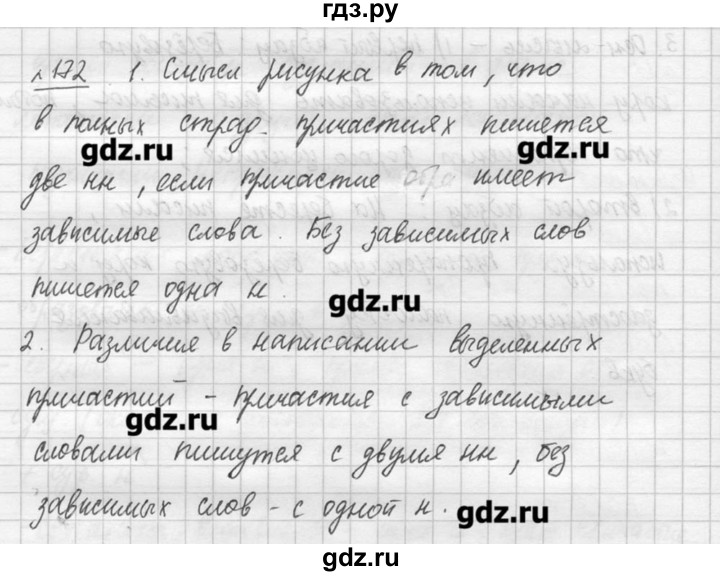 гдз.ру
№ 172 1. Смысл рисунка в том, что
в полных страд. причастиях пишется
gdz.ru gdz.ru
две нн, если причастие имеет
зависимые слова. Без зависимых слов
пишется одна н.
gdz.ru
2. Различие в написании выделенных
причастий - причастия с зависимыми
gdz.ru
словами пишутся с двумя нн, без
зависимых слов - с одной н.
gdz.ru
gdz.ru